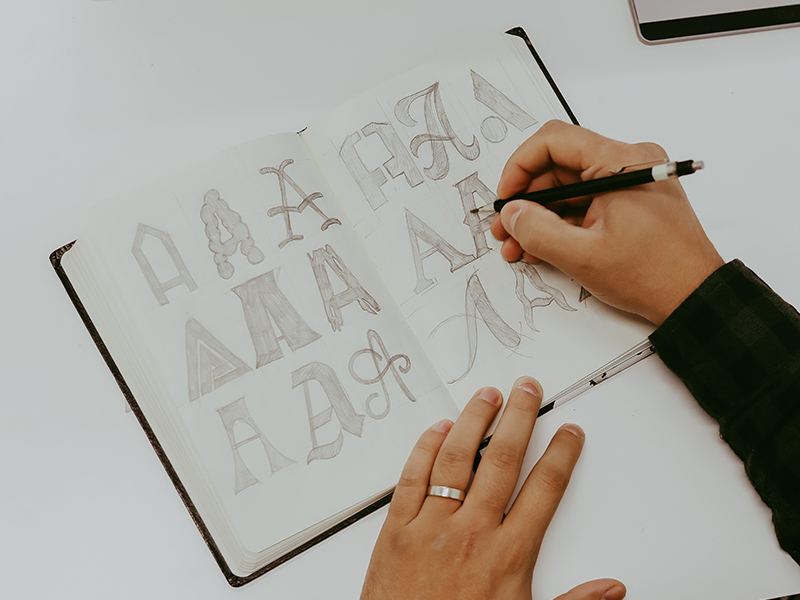 A A A
A A A
A A A
A A A
A A
A A